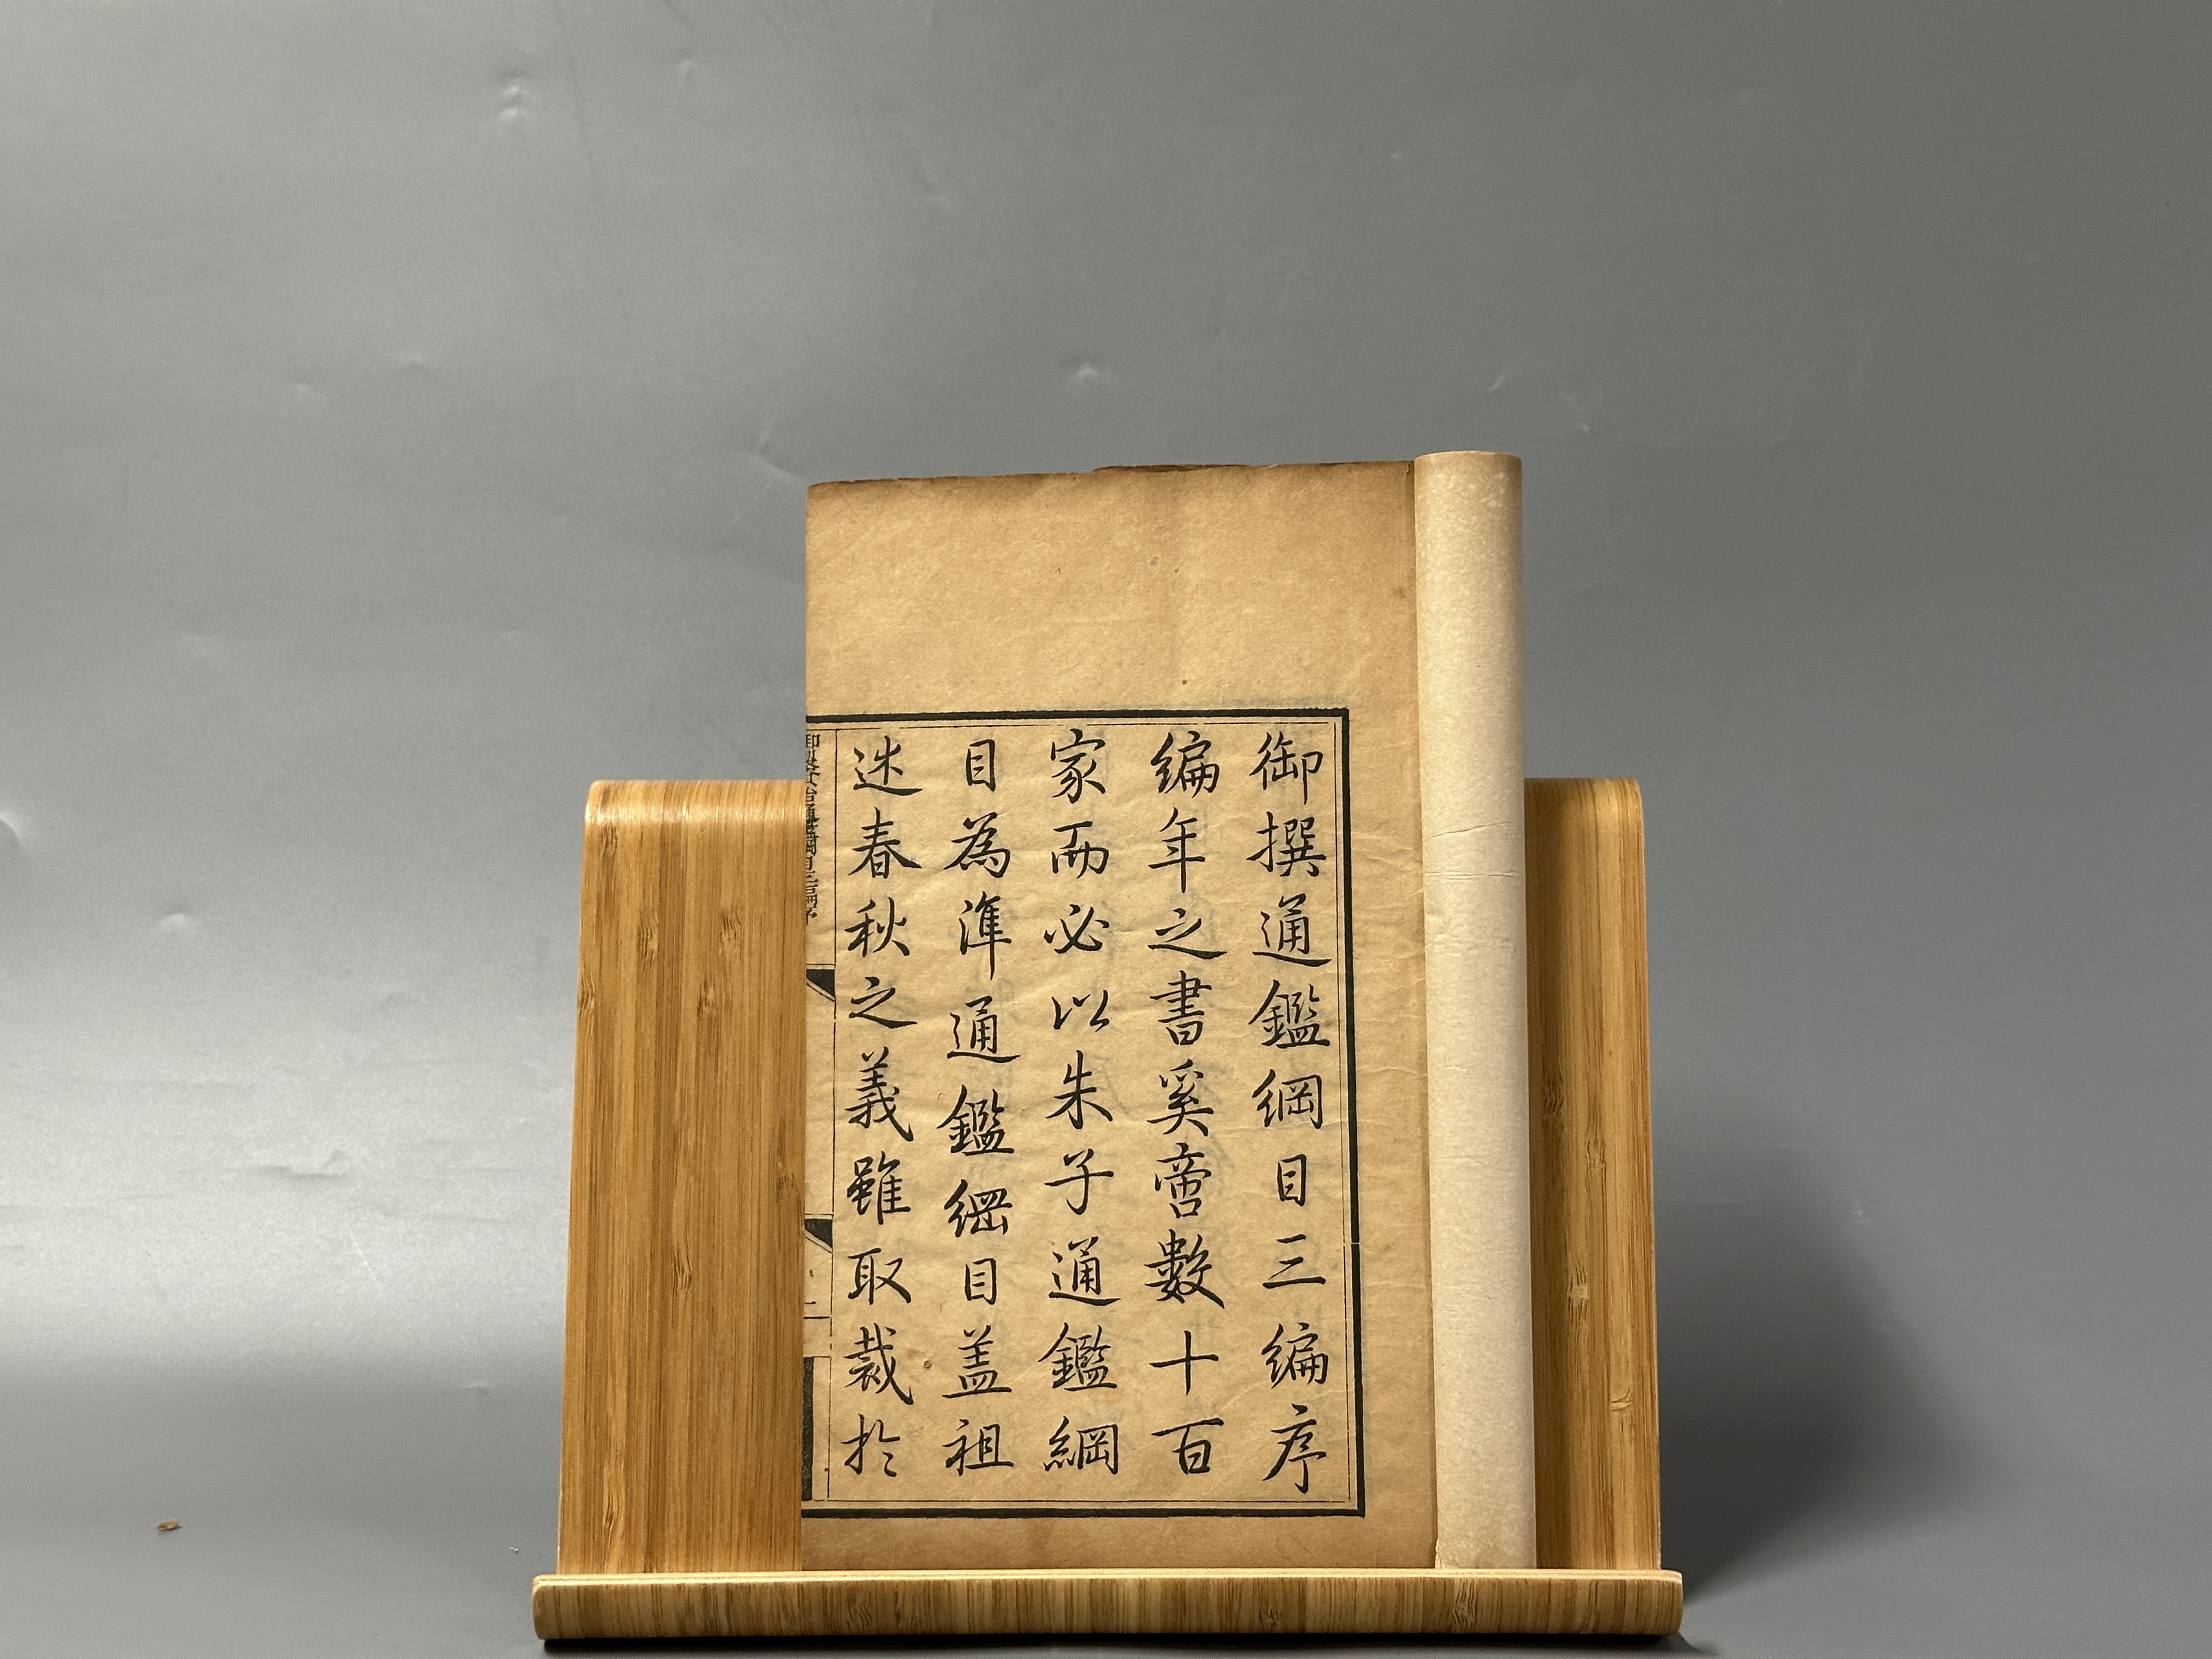 御撰通鑑綱目三編序
編年之書奚啻數十百
家而必以朱子通鑑綱
目為準通鑑綱目盖祖
述春秋之義雖取裁於